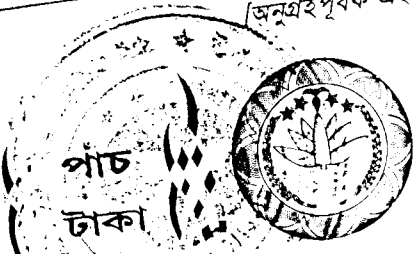 [অনুগ্রহপূর্বক
পাচ
টাকা